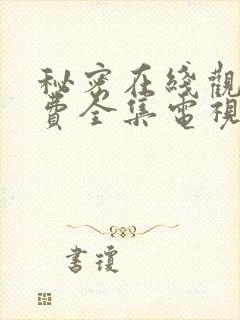 秘密在綫觀
費全集電視
書瓊